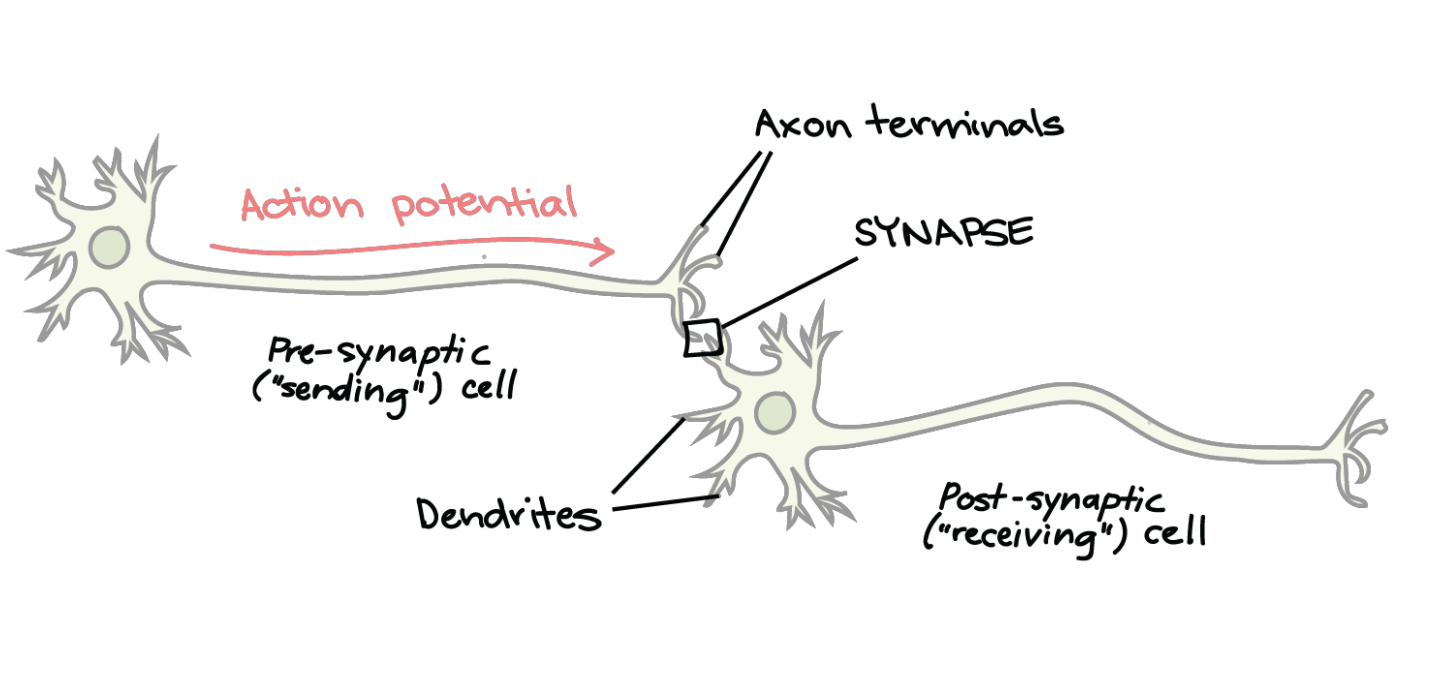 Axon terminals
Action potential
SYNAPSE
Pre-synaptic
("sending") cell
Dendrites
Post-synaptic
("receiving") cell